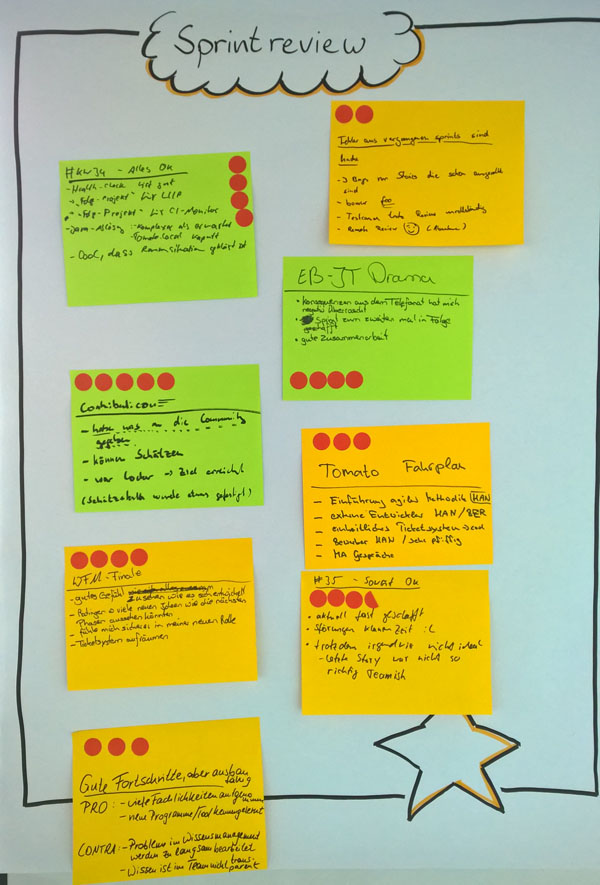 Sprintreview
Fehler aus vergangenen sprints sind
heute
-> Bugs vor Stories die schon ausgerollt
sind
- besser
- Testserver trotz Review unvollständig
- Remote Review
#KW34 - Alles OK
- Health-Check lief gut
- "Fdp-Projekt" für LIIP
- "Fdp-Projekt" für CI-Monitor
- Komplexer als erwartet
- Tomate.local kaputt
- Cool, dass Raumsituation geklärt ist
EB-JT Drama
• Konsequenzen aus dem Telefonat hat mich
negativ überrascht
• Sprint zum zweiten mal in Folge
geschafft
• gute Zusammenarbeit
Contribution
- haben was an die Community
gegeben
- können Schätzen
- war locker -> Ziel erreicht
(Schätzstalk wurde etwas gefestigt)
Tomato Fahrplan
- Einführung agiler Methodik HAN
- externe Entwickler HAN/BER
- einheitliches Ticketsystem
- Bewerber HAN / sehr pfiffig
- MA Gespräche
WFM-Finale
- gutes Gefühl
zu sehen wie es sich entwickelt
- Ratingen & viele neuen Ideen wie die nächsten
Phasen aussehen könnten
- fühle mich sicherer in meiner neuen Rolle
- Ticketsystem aufräumen
#35 - Soweit OK
• aktuell fast geschafft
• Störungen klauen Zeit :(
• trotzdem irgendwie nicht ideal
- letzte Story war nicht so
richtig Teamish
Gute Fortschritte, aber ausbau
fähig
PRO: - viele Fachlichkeiten aufgenommen
- neue Programme/Tool kennengelernt
CONTRA: - Probleme im Wissensmanagement
werden zu langsam bearbeitet
- Wissen ist im Team nicht trans-
parent